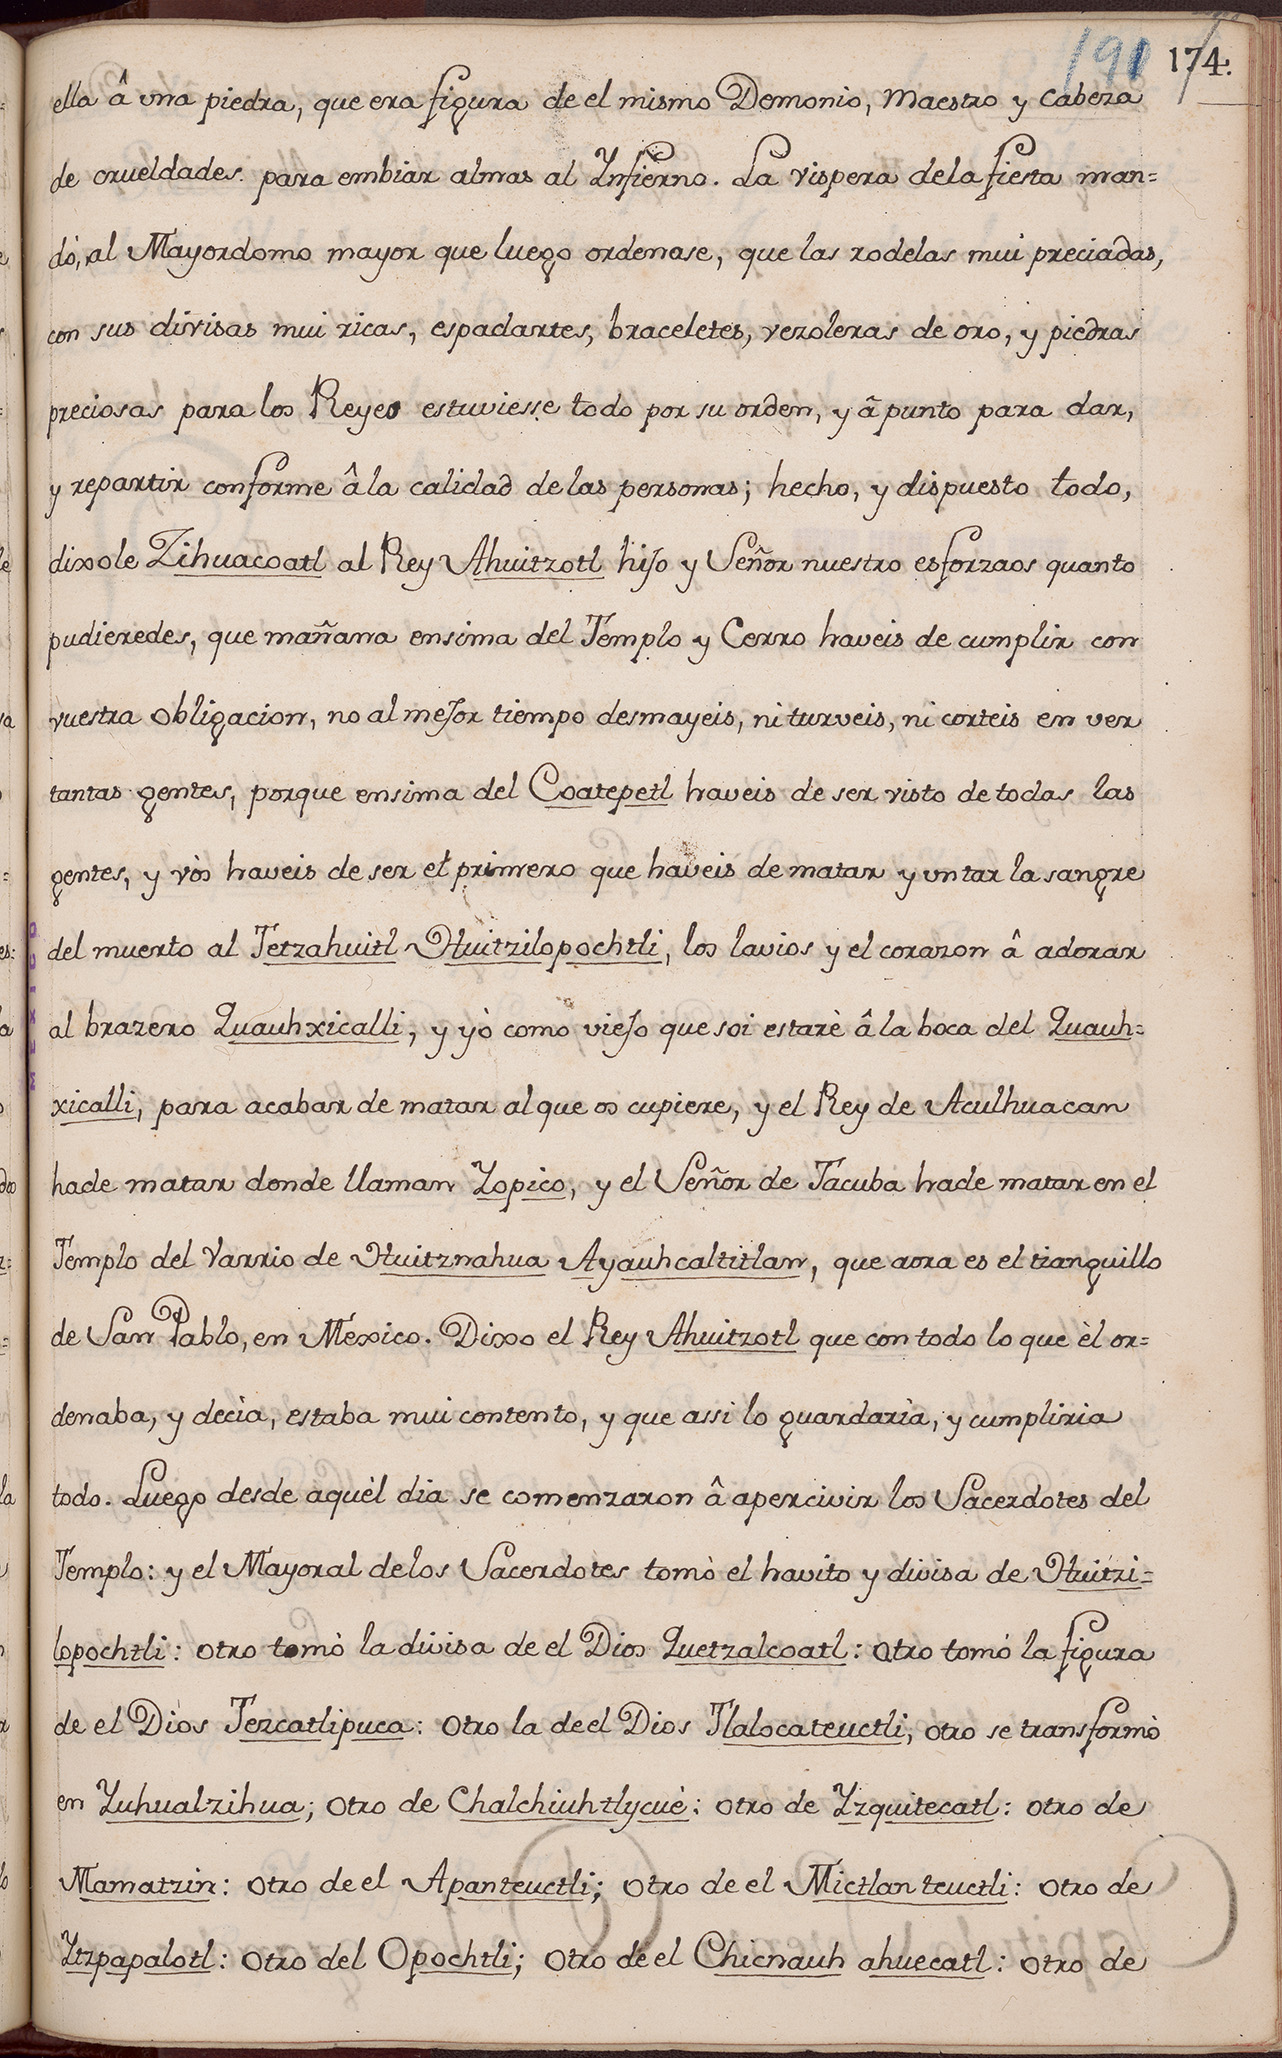 191 174.
ella â una piedra, que era figura de el mismo Demonio, Maestro y Cabeza
de crueldades. para embiar almas al Ynfierno. La vispera dela fiesta man=
dò, al Mayordomo mayor que luego ordenase, que las rodelas mui preciadas,
con sus divisas mui ricas, espadartes, braceletes, vezoleras de oro, y piedras
preciosas para los Reyes estuviesse todo por su orden, y â punto para dar,
y repartir conforme â la calidad de las personas; hecho, y dispuesto todo,
dixole Zihuacoatl al Rey Ahuitzotl hijo y Señor nuestro esforzaos quanto
pudieredes, que mañana ensima del Templo y Cerro haveis de cumplir con
vuestra obligacion, no al mejor tiempo desmayeis, ni turveis, ni corteis en ver
tantas gentes, porque ensima del Coatepetl haveis de ser visto de todas las
gentes, y vòs haveis de ser el primero que haveis de matar y untar la sangre
del muerto al Tetzahuitl Huitzilopochtli, los lavios y el corazon â adorar
al brazero Quauhxicalli, y yò como viejo que soi estarè â la boca del Quauh=
xicalli, para acabar de matar al que os cupiere, y el Rey de Aculhuacan
hade matar donde llaman Yopico, y el Señor de Tacuba hade matar en el
Templo del Varrio de Huitznahua Ayauhcaltitlan, que aora es el tianguillo
de San Pablo, en Mexico. Dixo el Rey Ahuitzotl que con todo lo que èl or=
denaba, y decia, estaba mui contento, y que assi lo guardarìa, y cumpliria
todo. Luego desde aquèl dia se comenzaron â apercivir los Sacerdotes del
Templo: y el Mayoral delos Sacerdotes tomò el havito y divisa de Huitzi=
lopochtli: otro tomò la divisa de el Dios Quetzalcoatl: otro tomò la figura
de el Dios Tezcatlipuca: otro la de el Dios Tlalocateuctli, otro se transformò
en Yuhualzihua; otro de Chalchiuhtlycuè: otro de Yzquitecatl: otro de
Mamatzin: otro de el Apanteuctli; otro de el Mictlanteuctli: otro de
Ytzpapalotl: otro del Opochtli; otro de el Chicnauh ahuecatl: otro de